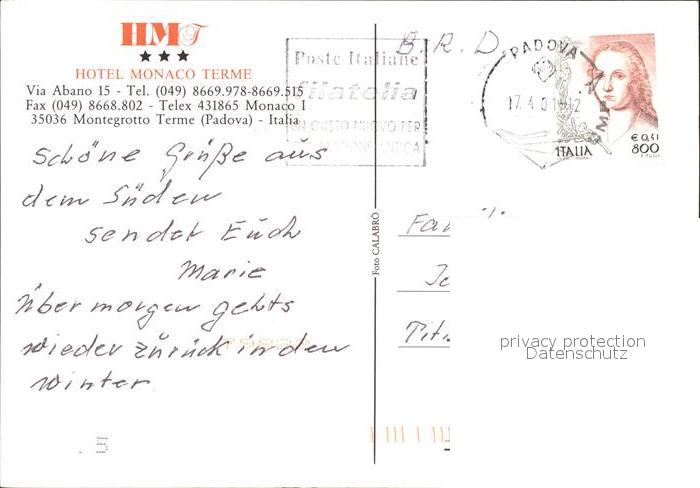 HMT
HOTEL MONACO TERME
Via Abano 15 - Tel. (049) 8669.978-8669.515
Fax (049) 8668.802 - Telex 431865 Monaco I
35036 Montegrotto Terme (Padova) - Italia
Poste Italiane
filatelia
UN GUSTO NUOVO PER
B.R.D.
PADOVA
17.4.01
ITALIA
€ 0,41
800
Schöne Grüße aus
dem Süden
sendet Euch
Marie
Übermorgen gehts
wieder zurück in den
Winter
Foto CALABRÒ
privacy protection
Datenschutz